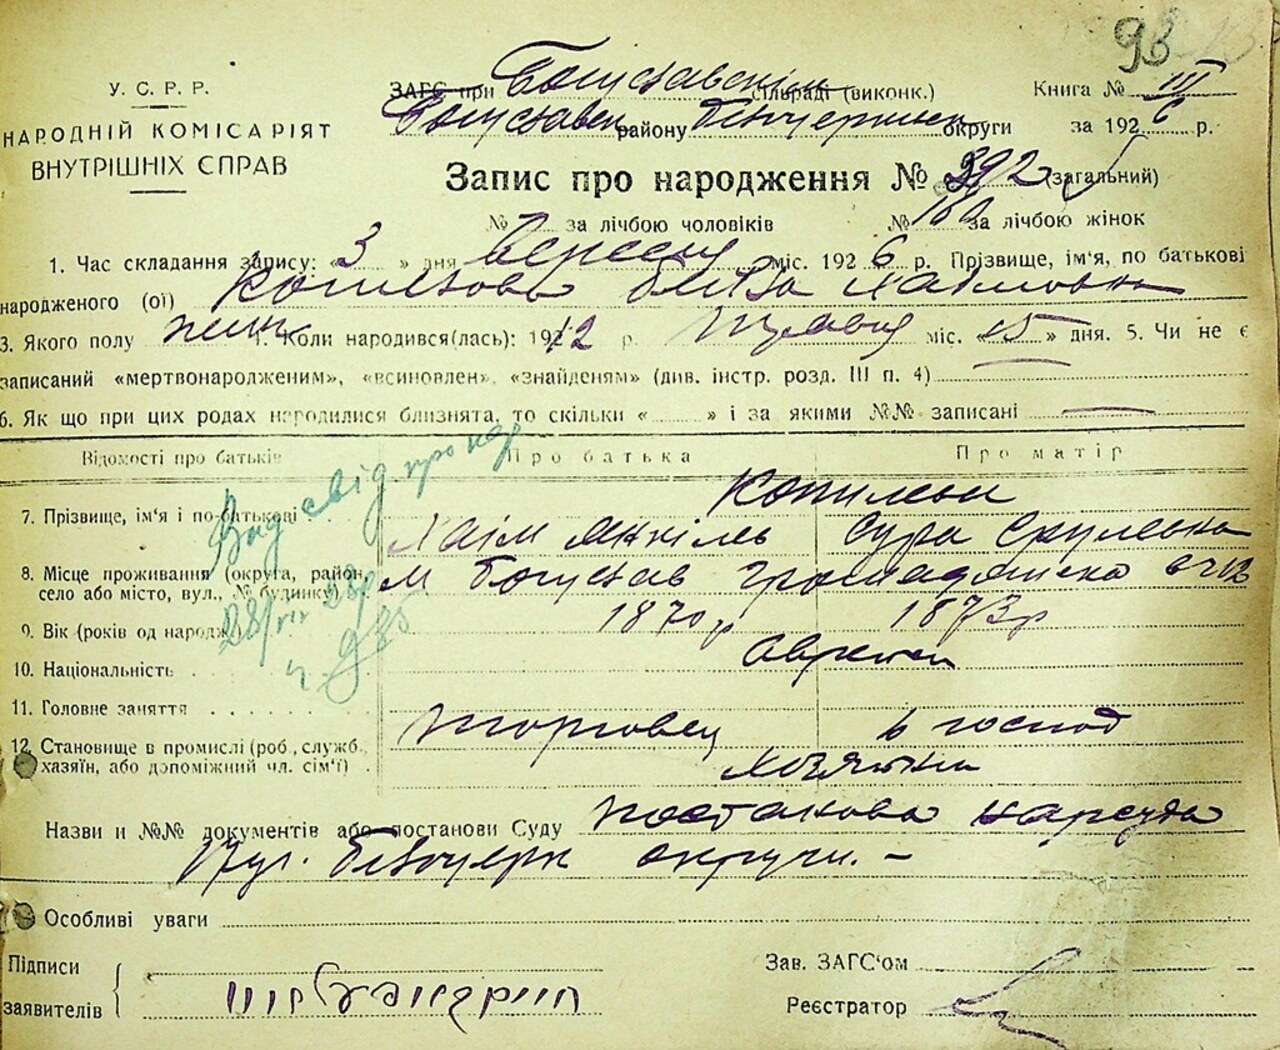 93
У. С. Р. Р.
НАРОДНІЙ КОМІСАРІЯТ
ВНУТРІШНІХ СПРАВ
ЗАГС при Богуславскім сільраді (виконк.)
Книга № III
Богуславск району Білоцерківск округи за 1926 р.
Запис про народження № 392 (загальний)
№ за лічбою чоловіків № за лічбою жінок
1. Час складання запису: «3» дня Вересня міс. 1926 р. Прізвище, ім'я, по батькові
народженого (ої) Хаїмовна
3. Якого полу жін 4. Коли народився(лась): 1912 р. Травня міс. «15» дня. 5. Чи не є
записаний «мертвонародженим», «всиновлен», «знайденям» (див. інстр. розд. III п. 4)
6. Як що при цих родах народилися близнята, то скільки « » і за якими №№ записані
Відомості про батьків Про батька Про матір
7. Прізвище, ім'я і по-батькові
Хаім Сура Срулевна
8. Місце проживання (округа, район,
село або місто, вул., № будинку)
м Богуслав
9. Вік (років од народж.) 1870 р 1873 р
10. Національність Євреї
11. Головне заняття торговец в господ
12. Становище в промислі (роб., служб.,
хазяїн, або допоміжний чл. сім'ї)
хозяіни
Вид свід про нар
28/VII
Назви и №№ документів або постанови Суду постанова нарсуда
Білоцерк округи. –
Особливі уваги
Підписи
заявителів
Зав. ЗАГС'ом
Реєстратор